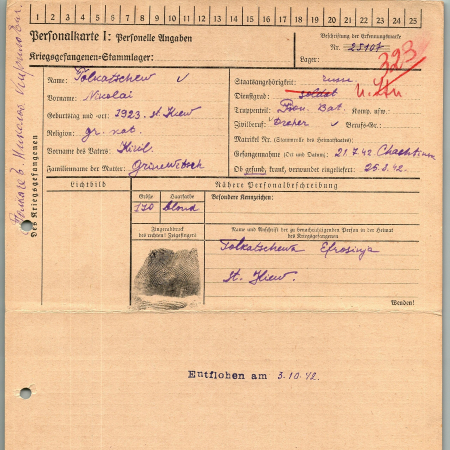 1 2 3 4 5 6 7 8 9 10 11 12 13 14 15 16 17 18 19 20 21 22 23 24 25
Personalkarte I: Personelle Angaben
Kriegsgefangenen-Stammlager:
Beschriftung der Erkennungsmarke
Nr. 25107
Lager:
323
Des Kriegsgefangenen
Name: Tolkatschew
Vorname: Nicolai
Geburtstag und -ort: 1923. st. Kiew
Religion:
Vorname des Vaters: Kiril
Familienname der Mutter:
Staatsangehörigkeit: russe
Dienstgrad: Soldat
Truppenteil: Bat. Komp. usw.:
Zivilberuf: Dreher Berufs-Gr.:
Matrikel Nr. (Stammrolle des Heimatstaates):
Gefangennahme (Ort und Datum): 21.7.42
Ob gesund, krank, verwundet eingeliefert: 25.8.42.
Lichtbild
Nähere Personalbeschreibung
Größe Haarfarbe Besondere Kennzeichen:
170 blond
Fingerabdruck
des rechten! Zeigefingers
Name und Anschrift der zu benachrichtigenden Person in der Heimat
des Kriegsgefangenen
Tolkatschewa Efrosinja
st. Kiew
Wenden!
Entflohen am 3.10.42.